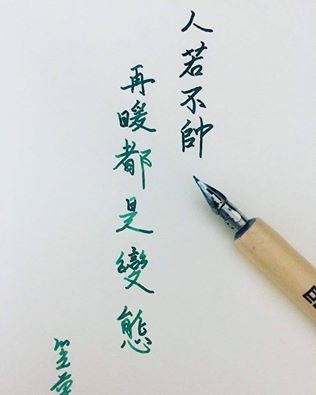 人若不帥
再暖都是變態